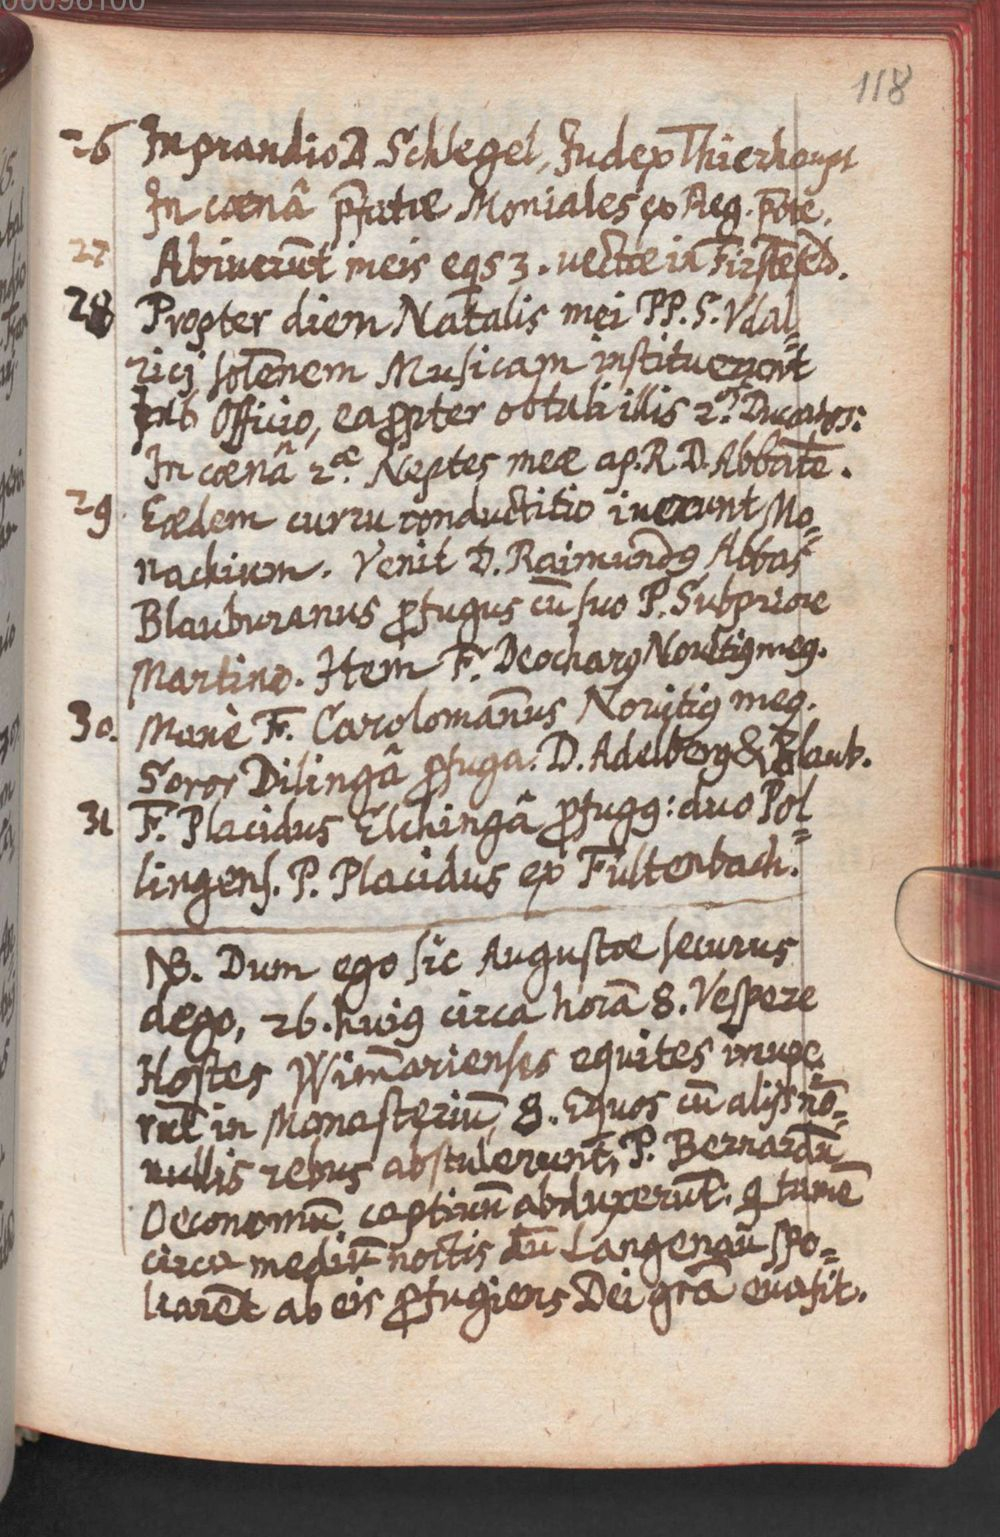 118
26 In prandio D. Schlegel, Judex Thierhaupt
In cœnâ p̄fatæ Moniales ex Reg. pōte.
27 Abiverūt meis eqs 3. vectæ in Firstēfeld.
28 Propter diem Natalis mei PP. S. Vdal=
rici solēnem Musicam instituerunt
sub Officio, eaꝓpter obtuli illis 2. Ducatos.
In cœnâ 2æ Neptes meæ ap. R. D. Abbāte.
29 Eædem curru conductitio iverunt Mo=
nachium. Venit D. Raimundꝰ Abbas
Blauburanus ꝓfugus cū suo P. Subpriore
Martino. Item F. Deocharꝰ Novitiꝰ meꝰ.
30. Manè F. Carolomān̄us Novitiꝰ meꝰ.
Soror Dilingâ ꝓfuga. D. Adelberg & Blaub.
31 F. Placidus Elchingâ ꝓfugꝰ: duo Pol=
lingens. P. Placidus ex Fultenbach.
NB. Dum ego sic Augustæ securus
dego, 26. huiꝰ circa horā 8. Vespere
Hostes Wim̄arienses equites irrupe
rūt in Monasteriū, 8. Equos cū alijs nō=
nullis rebus abstulerunt, P. Bernardū
Oeconomū captivū abduxerūt. q tamē
circa mediū noctis dū Langenaū spo=
liarēt ab eis ꝓfugiens Dei grā evasit.